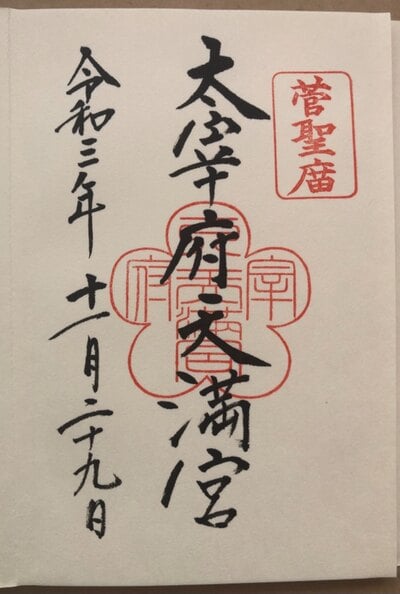 菅聖庿
太宰府天満宮
令和三年 十一月二十九日